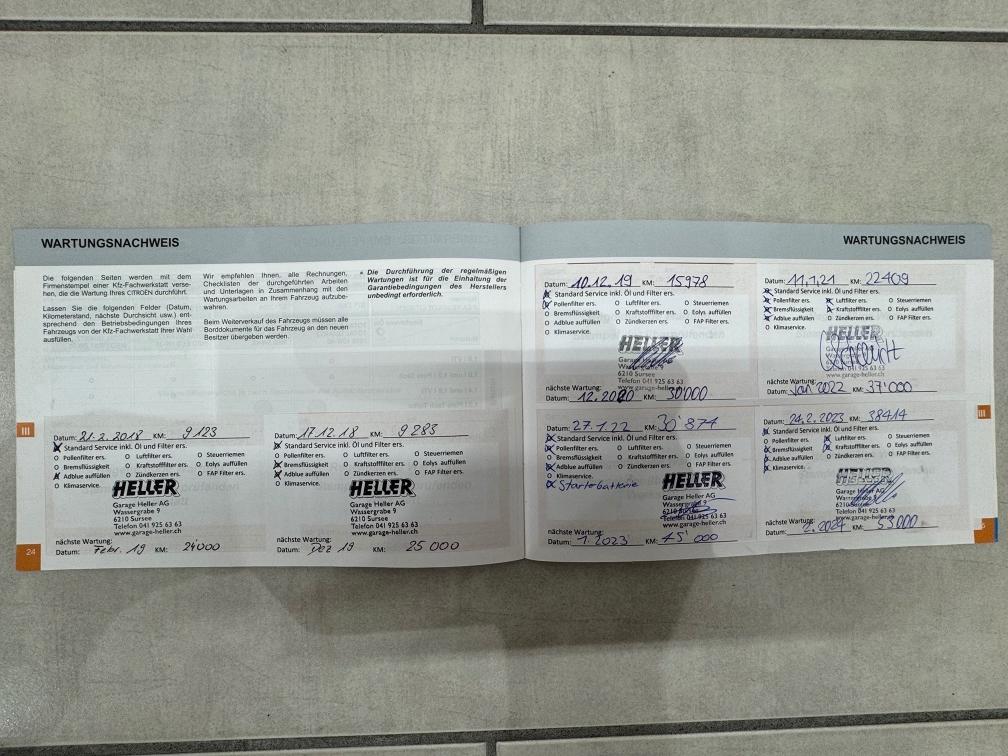 WARTUNGSNACHWEIS
Die folgenden Seiten werden mit dem
Firmenstempel einer Kfz-Fachwerkstatt verse-
hen, die die Wartung Ihres CITROËN durchführt.
Lassen Sie die folgenden Felder (Datum,
Kilometerstand, nächste Durchsicht usw.) ent-
sprechend den Betriebsbedingungen Ihres
Fahrzeugs von der Kfz-Fachwerkstatt Ihrer Wahl
ausfüllen.
Wir empfehlen Ihnen, alle Rechnungen,
Checklisten der durchgeführten Arbeiten
und Unterlagen in Zusammenhang mit den
Wartungsarbeiten an Ihrem Fahrzeug aufzube-
wahren.
Beim Weiterverkauf des Fahrzeugs müssen alle
Borddokumente für das Fahrzeug an den neuen
Besitzer übergeben werden.
* Die Durchführung der regelmäßigen
Wartungen ist für die Einhaltung der
Garantiebedingungen des Herstellers
unbedingt erforderlich.
III
Datum: 21.2.2018 KM: 9123
Standard Service inkl. Öl und Filter ers.
O Pollenfilter ers. O Luftfilter ers. O Steuerriemen
O Bremsflüssigkeit O Kraftstofffilter ers. O Eolys auffüllen
Adblue auffüllen O Zündkerzen ers. O FAP Filter ers.
O Klimaservice.
HELLER
Garage Heller AG
Wassergrabe 9
6210 Sursee
Telefon 041 925 63 63
www.garage-heller.ch
nächste Wartung:
Datum: Febr. 19 KM: 24000
Datum: 17.12.18 KM: 9283
Standard Service inkl. Öl und Filter ers.
O Pollenfilter ers. O Luftfilter ers. O Steuerriemen
Bremsflüssigkeit O Kraftstofffilter ers. O Eolys auffüllen
Adblue auffüllen O Zündkerzen ers. O FAP Filter ers.
O Klimaservice.
HELLER
Garage Heller AG
Wassergrabe 9
6210 Sursee
Telefon 041 925 63 63
www.garage-heller.ch
nächste Wartung:
Datum: Dez 19 KM: 25 000
24
WARTUNGSNACHWEIS
Datum: 10.12.19 KM: 15978
Standard Service inkl. Öl und Filter ers.
Pollenfilter ers. O Luftfilter ers. O Steuerriemen
O Bremsflüssigkeit O Kraftstofffilter ers. O Eolys auffüllen
O Adblue auffüllen O Zündkerzen ers. O FAP Filter ers.
O Klimaservice.
HELLER
6210 Sursee
Telefon 041 925 63 63
www.garage-heller.ch
nächste Wartung:
Datum: 12.2020 KM: 30000
Datum: 11.1.21 KM: 22409
Standard Service inkl. Öl und Filter ers.
Pollenfilter ers. Luftfilter ers. O Steuerriemen
Bremsflüssigkeit Kraftstofffilter ers. O Eolys auffüllen
Adblue auffüllen O Zündkerzen ers. O FAP Filter ers.
O Klimaservice.
HELLER
Telefon 041 925 63 63
www.garage-heller.ch
nächste Wartung:
Datum: Jan 2022 KM: 37'000
III
Datum: 27.1.22 KM: 30'874
Standard Service inkl. Öl und Filter ers.
Pollenfilter ers. O Luftfilter ers. O Steuerriemen
O Bremsflüssigkeit O Kraftstofffilter ers. O Eolys auffüllen
Adblue auffüllen O Zündkerzen ers. O FAP Filter ers.
Klimaservice.
Starterbatterie
HELLER
Garage Heller AG
Wassergrabe 9
6210 Sursee
Telefon 041 925 63 63
www.garage-heller.ch
nächste Wartung:
Datum: 1.2023 KM: 45'000
Datum: 24.2.2023 KM: 38414
Standard Service inkl. Öl und Filter ers.
Pollenfilter ers. Luftfilter ers. O Steuerriemen
Bremsflüssigkeit Kraftstofffilter ers. O Eolys auffüllen
Adblue auffüllen O Zündkerzen ers. O FAP Filter ers.
Klimaservice.
HELLER
Garage Heller AG
Wassergrabe 9
6210 Sursee
Telefon 041 925 63 63
www.garage-heller.ch
nächste Wartung:
Datum: 2.2024 KM: 53000